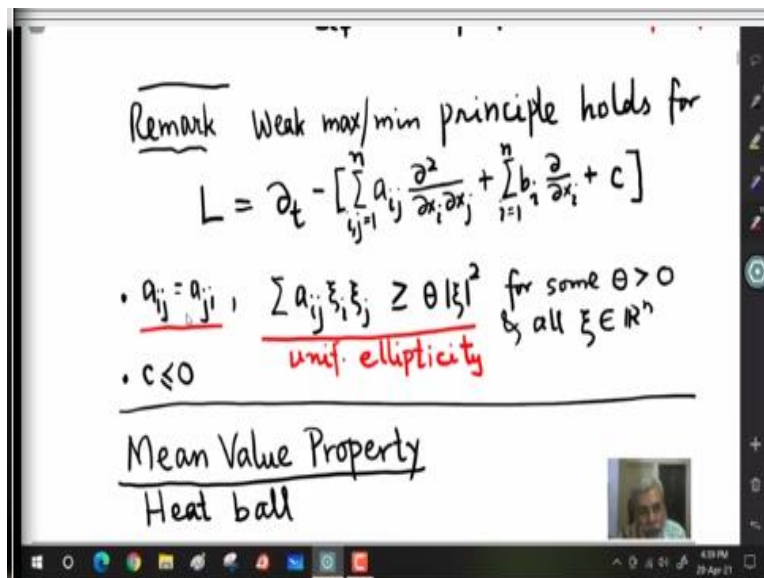 Remark Weak max/min principle holds for
L = ∂t - [ Σ_{i,j=1}^{n} a_{ij} ∂²/∂x_i∂x_j + Σ_{i=1}^{n} b_i ∂/∂x_i + c ]
• a_{ij} = a_{ji}, Σ a_{ij} ξ_i ξ_j ≥ θ|ξ|² for some θ > 0
& all ξ ∈ ℝⁿ
unif. ellipticity
• c ≤ 0
Mean Value Property
Heat ball
4:39 PM